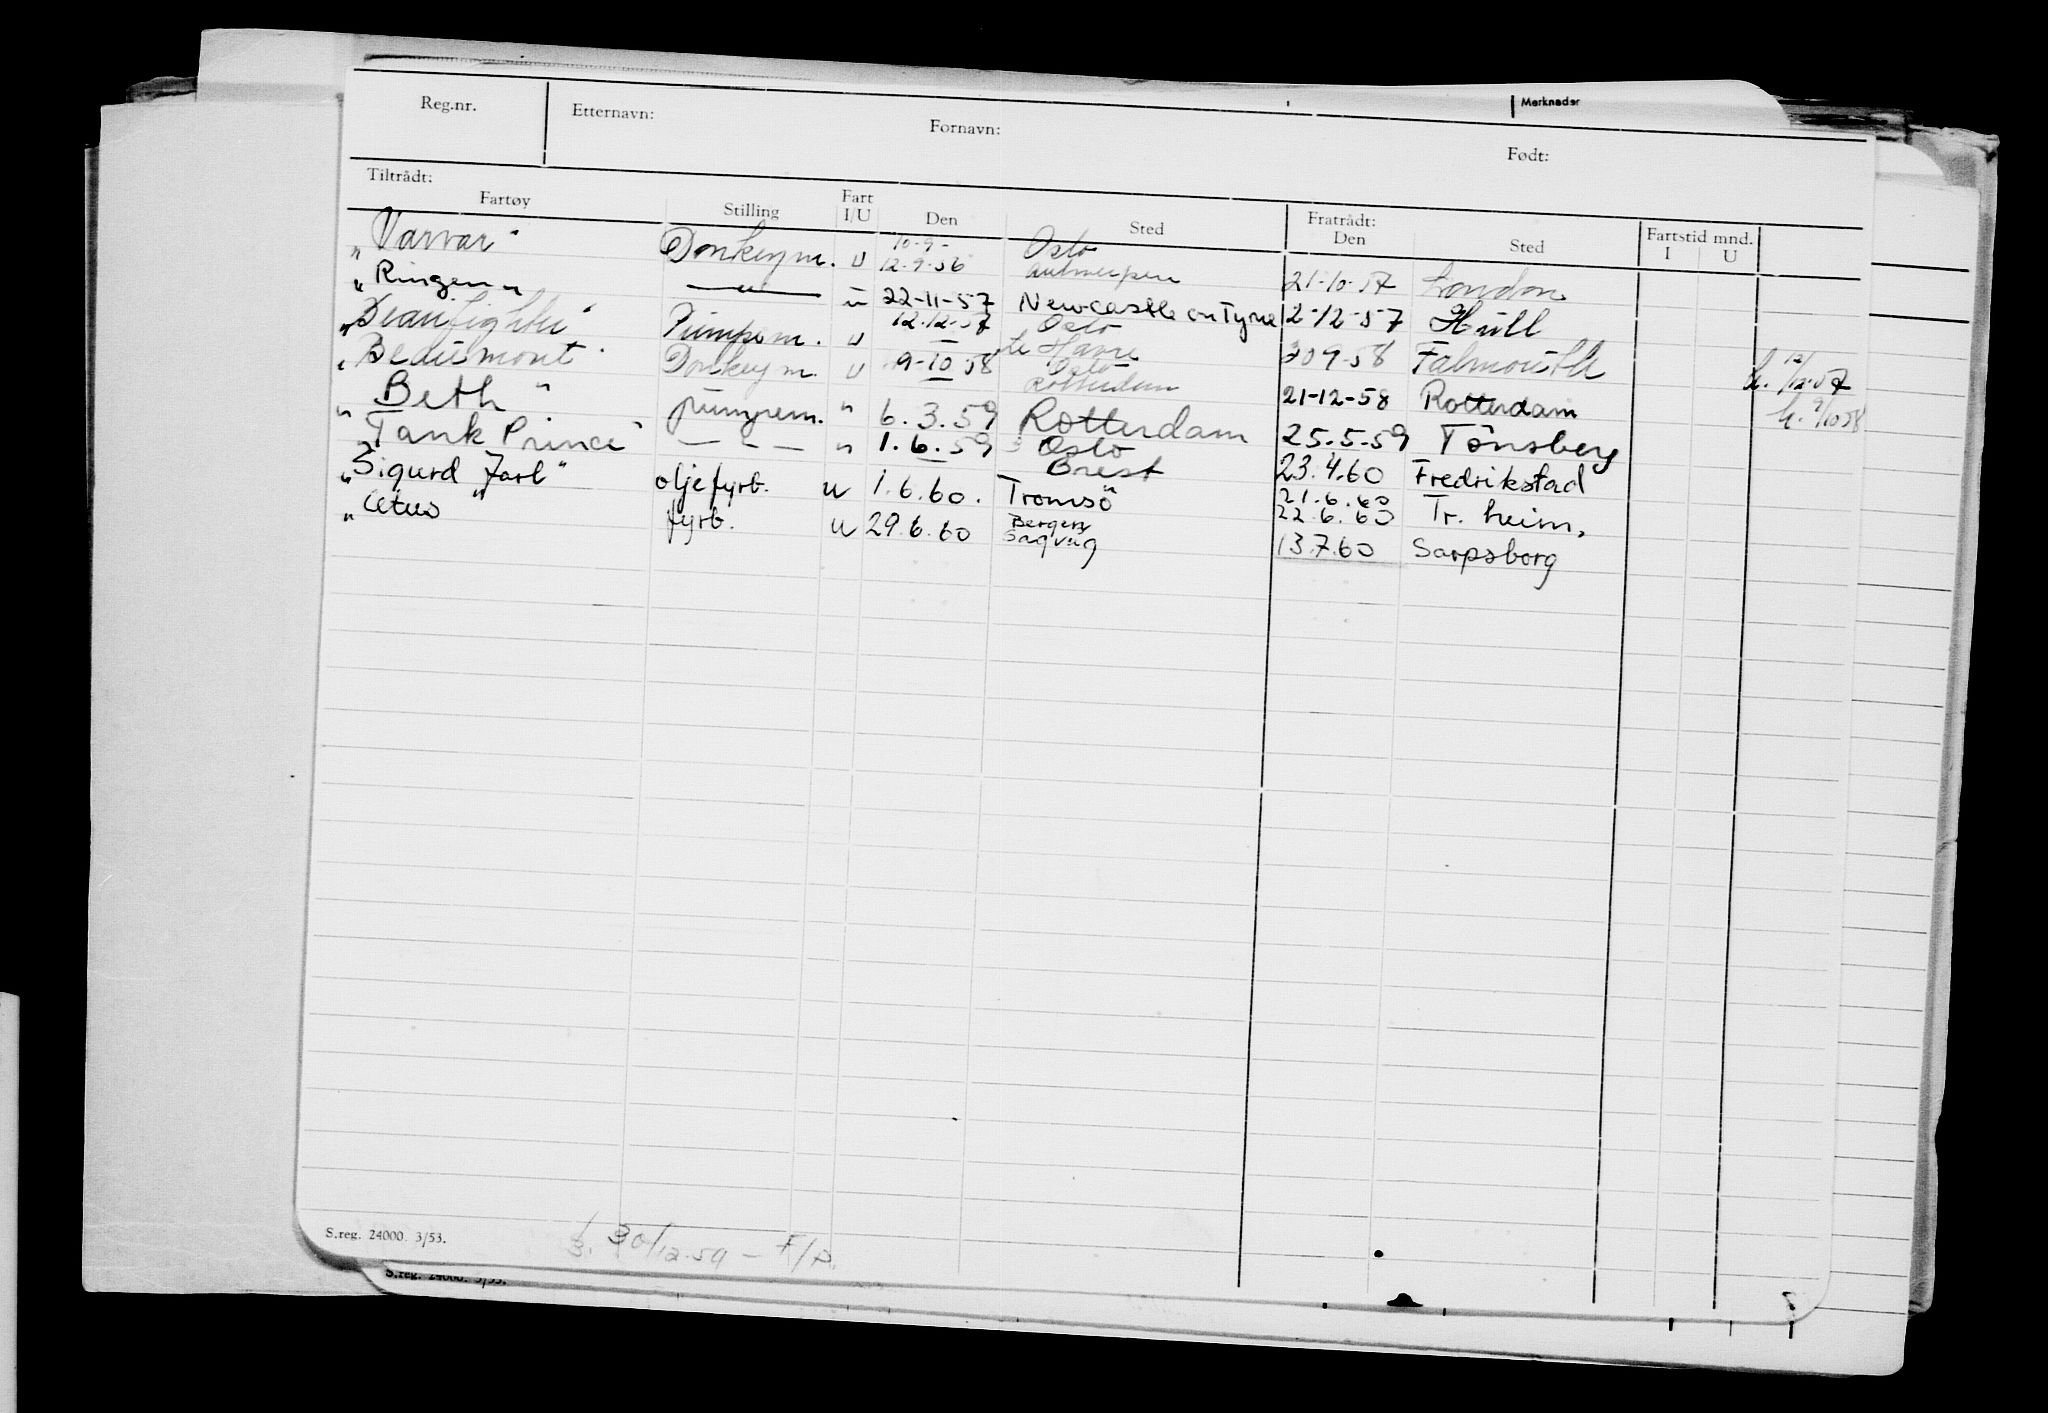 Merknader
Reg.nr. Etternavn: Fornavn: Født:
Tiltrådt: Fratrådt:
Fartøy Stilling Fart I/U Den Sted Den Sted Fartstid mnd. I U
"Varvar" Donkeym. u 10-9- 12-9-56 Oslo Antwerpen 21-10-57 London
"Ringen" —"— u 22-11-57 Newcastle on Tyne 2-12-57 Hull
"Beaufighter" Pumpem. u 12.12.57 Oslo le Havre 30 9-58 Falmouth h. 12/12.57
"Beaumont" Donkeym. u 9-10-58 Oslo Rotterdam 21-12-58 Rotterdam h. 9/10 58
"Beth" pumpem. " 6.3.59 Rotterdam 25.5.59 Tönsberg
"Tank Prince" — - — " 1.6.59 Oslo Brest 23.4.60 Fredrikstad
"Sigurd Jarl" oljefyrb. u 1.6.60. Tromsö 21.6.60 22.6.60 Tr. heim,
"Cetus" fyrb. u 29.6.60 Bergen Sagvåg 13.7.60 Sarpsborg
S.reg. 24000. 3/53.
30/12.59 – F/P.
S.reg. 24000. 3/53.